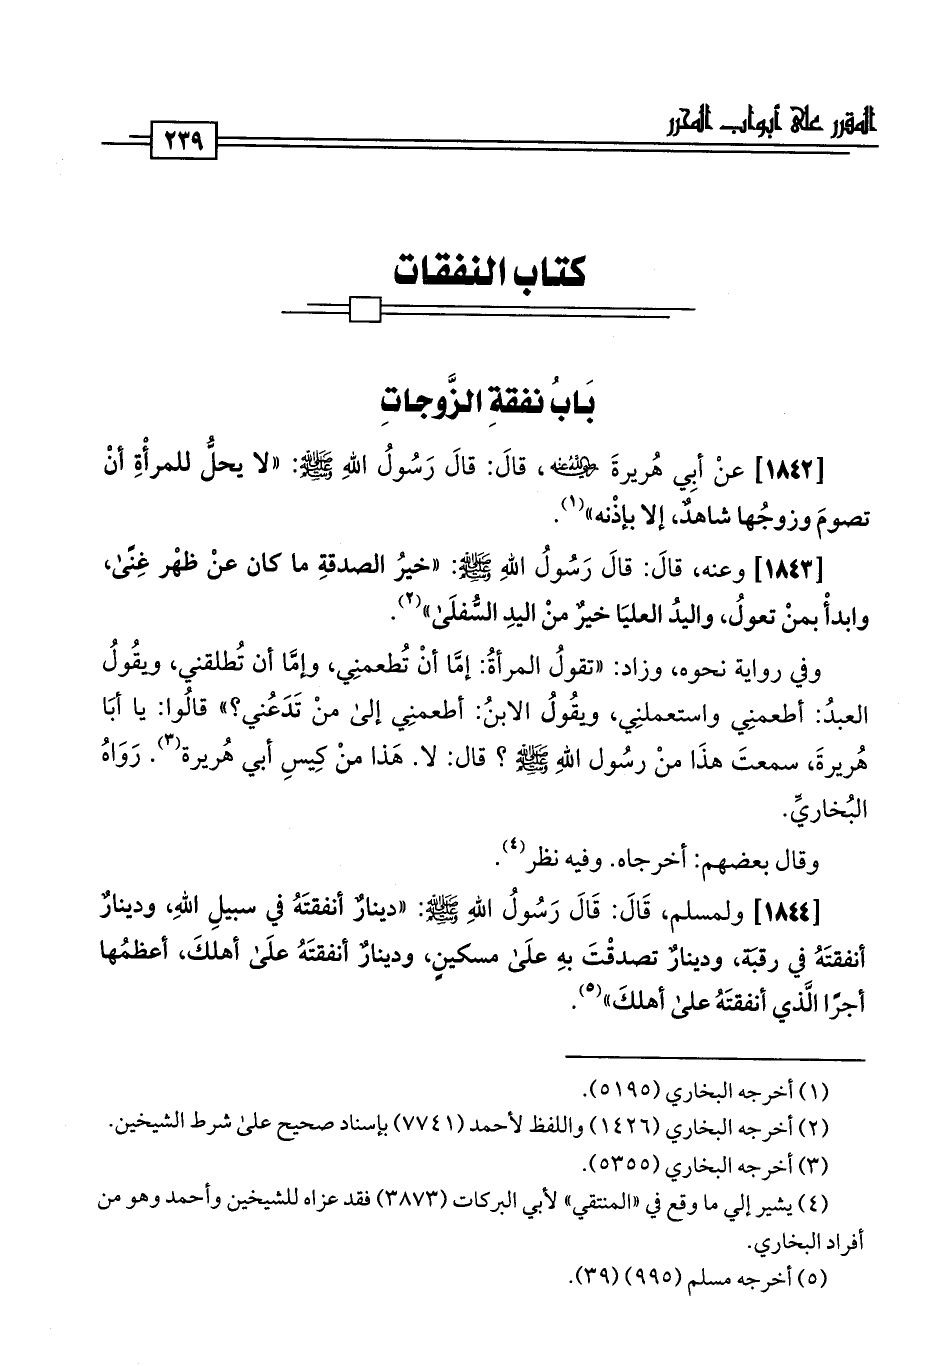 المقرر على أبواب المحرر
٢٣٩
كتاب النفقات
بَابُ نفقةِ الزَّوجاتِ
[١٨٤٢] عنْ أبِي هُريرةَ رضي الله عنه، قالَ: قالَ رَسُولُ اللهِ ﷺ: «لا يحلُّ للمرأْةِ أنْ
تصومَ وزوجُها شاهدٌ، إلا بإذْنه»(١).
[١٨٤٣] وعنه، قالَ: قالَ رَسُولُ اللهِ ﷺ: «خيرُ الصدقةِ ما كان عنْ ظهْر غِنًىٰ،
وابدأْ بمنْ تعولُ، واليدُ العليَا خيرٌ منْ اليدِ السُّفلَىٰ»(٢).
وفي رواية نحوه، وزاد: «تقولُ المرأةُ: إمَّا أنْ تُطعمنِي، وإمَّا أن تُطلقني، ويقُولُ
العبدُ: أطعمنِي واستعملنِي، ويقُولُ الابنُ: أطعمنِي إلىٰ منْ تَدَعُني؟» قالُوا: يا أبَا
هُريرةَ، سمعتَ هذَا منْ رسُول اللهِ ﷺ ؟ قال: لا. هَذا منْ كِيسِ أبي هُريرة(٣). رَوَاهُ
البُخاريِّ.
وقال بعضهم: أخرجاه. وفيه نظر(٤).
[١٨٤٤] ولمسلم، قَالَ: قَالَ رَسُولُ اللهِ ﷺ: «دينارٌ أنفقتَهُ في سبيلِ اللهِ، ودينارٌ
أنفقتَهُ في رقبَة، ودينارٌ تصدقْتَ بهِ علَىٰ مسكينٍ، ودينارٌ أنفقتَهُ علَىٰ أهلكَ، أعظمُها
أجرًا الَّذي أنفقتَهُ علىٰ أهلكَ»(٥).
(١) أخرجه البخاري (٥١٩٥).
(٢) أخرجه البخاري (١٤٢٦) واللفظ لأحمد (٧٧٤١) بإسناد صحيح علىٰ شرط الشيخين.
(٣) أخرجه البخاري (٥٣٥٥).
(٤) يشير إلي ما وقع في «المنتقي» لأبي البركات (٣٨٧٣) فقد عزاه للشيخين وأحمد وهو من
أفراد البخاري.
(٥) أخرجه مسلم (٩٩٥) (٣٩).